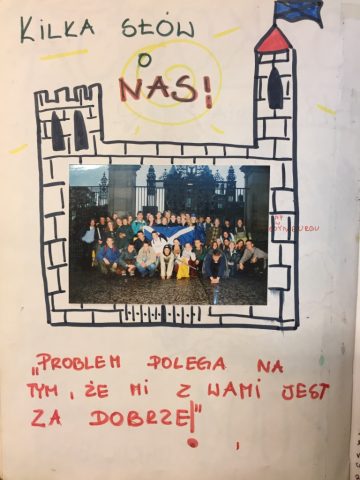 KILKA SŁÓW
O
NAS!
W
EDYNBURGU
„PROBLEM POLEGA NA
TYM, ŻE MI Z WAMI JEST
ZA DOBRZE!"